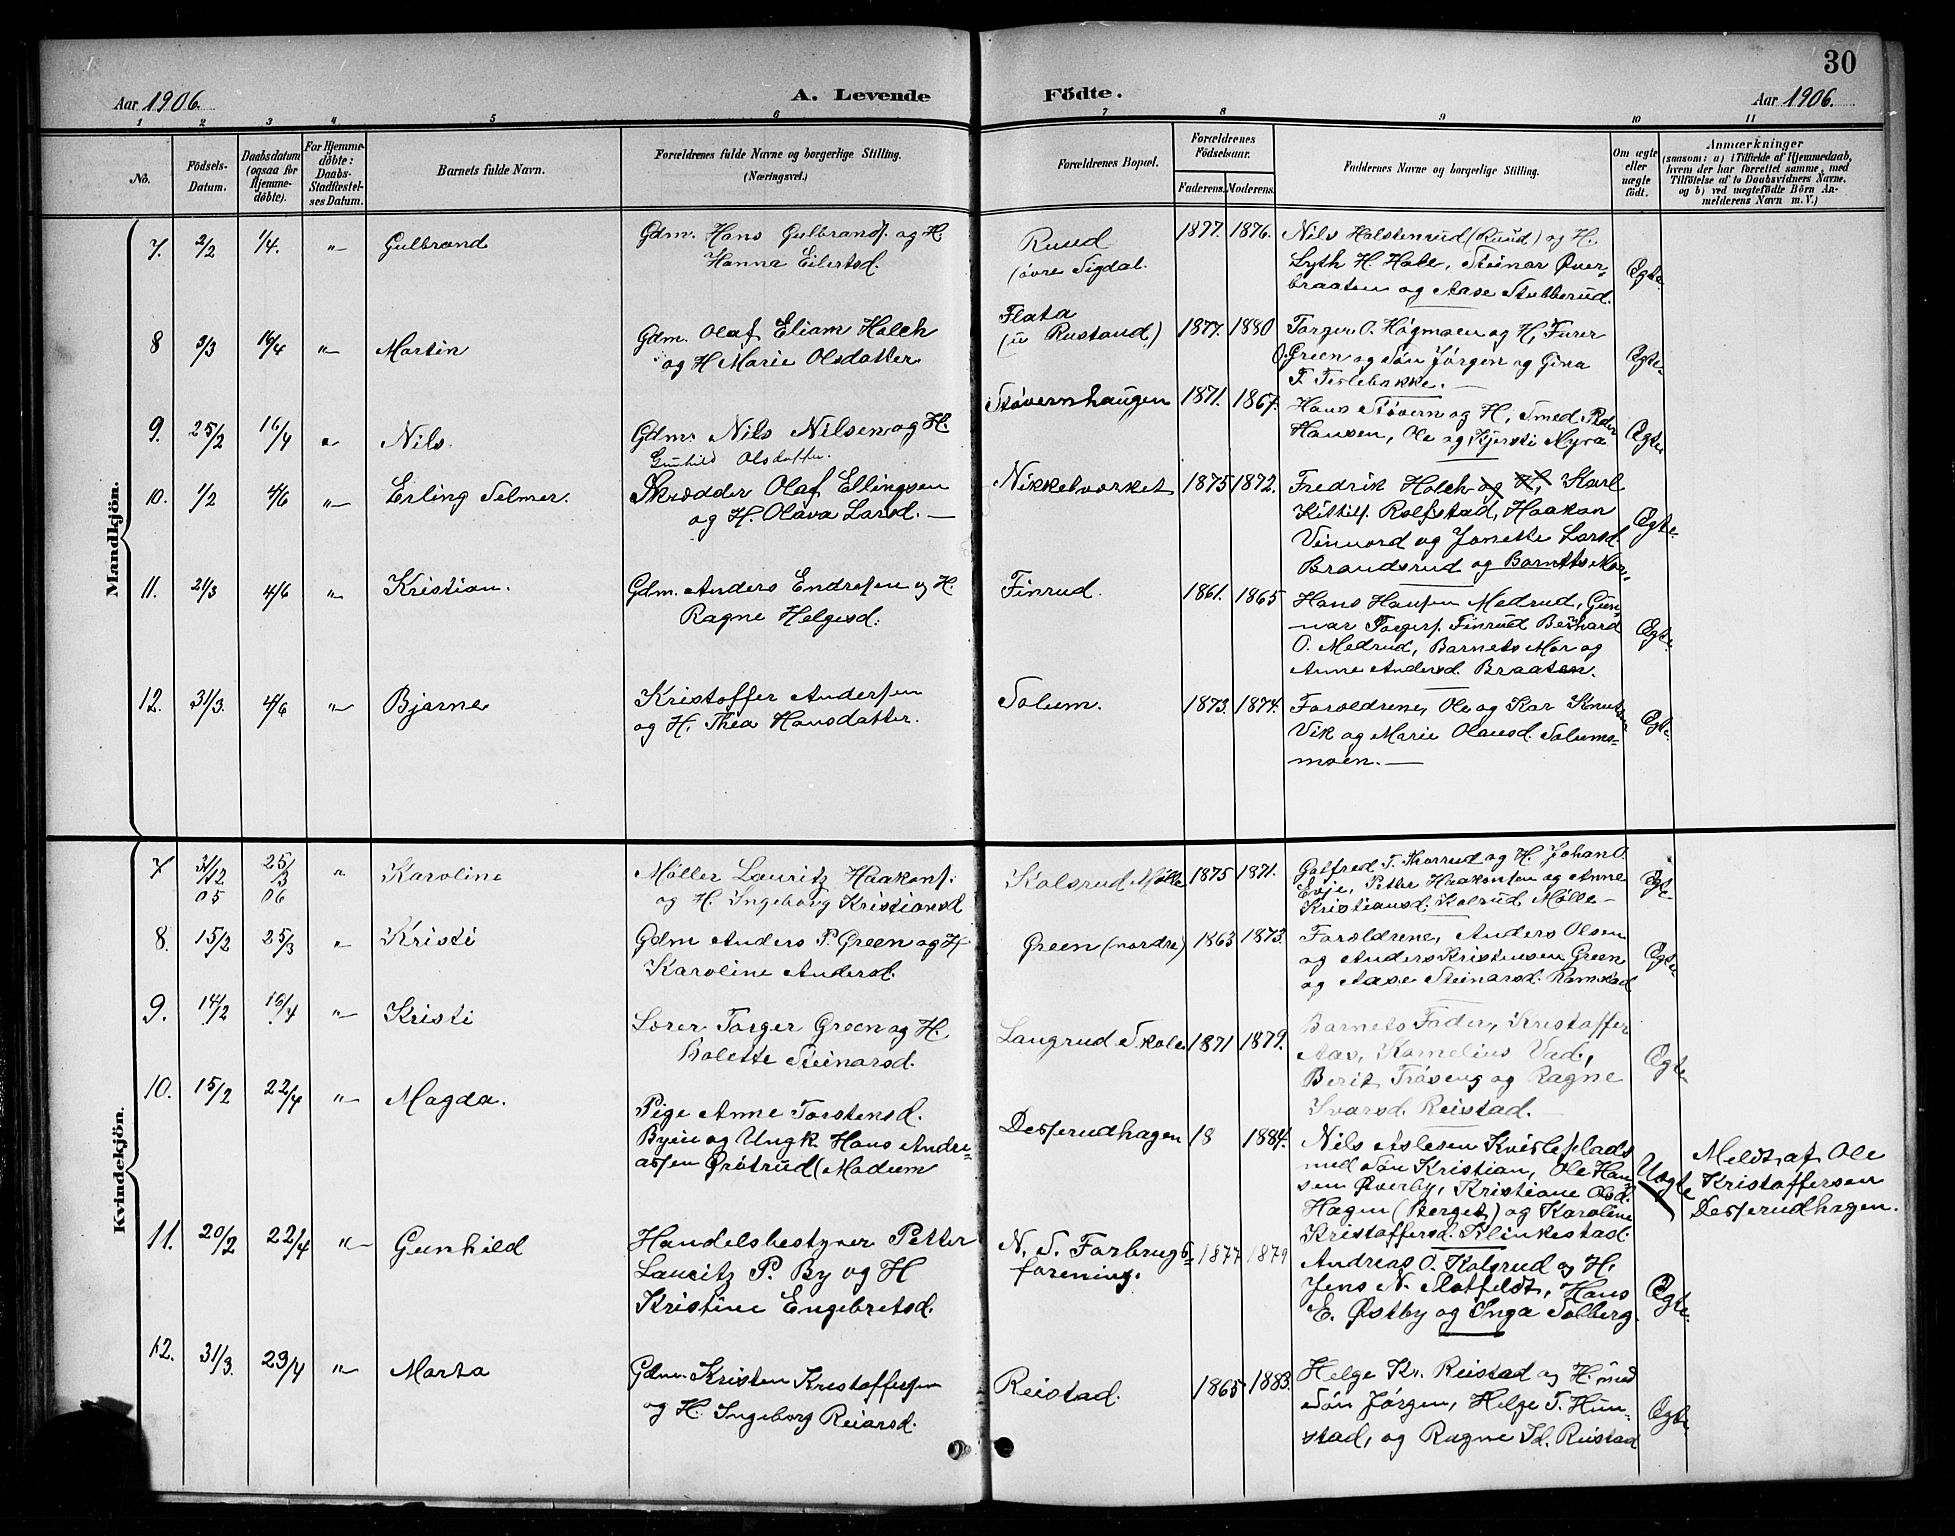 30
Aar 1906. A. Levende Födte. Aar 1906.
1 2 3 4 5 6 7 8 9 10 11
No.
Födsels-Datum.
Daabsdatum (ogsaa for Hjemme-döbte).
For Hjemme-döbte: Daabs-Stadfæstel-ses Datum.
Barnets fulde Navn.
Forældrenes fulde Navne og borgerlige Stilling. (Næringsvei.)
Forældrenes Bopæl.
Forældrenes Födselsaar.
Faderens. Moderens.
Faddernes Navne og borgerlige Stilling.
Om ægte eller uægte födt.
Anmærkninger
(saasom: a) i Tilfælde af Hjemmedaab, hvem der har forrettet samme, med Tilföielse af to Daabsvidners Navne, og b) ved uægtefödte Börn Anmelderens Navn m. V.)
Mandkjön.
7. 2/2 1/4. " Gulbrand
Gdm. Hans Gulbrands. og H.
Hanna Eilertsd.
Ruud
(øvre Sigdal.
1877. 1876.
Nils Halstenrud (Ruud) og H.
Lyth H. Hole, Steinar Øver-
braaten og Aase Stubberud.
Ægte.
8 3/3 16/4 " Martin
Gdm. Olaf Eliam Holch
og H Marie Olsdatter
Flata
(u Rustand)
1877. 1880
Torger O. Høgmoen og H, Furer
Green og Søn Jørgen og Gina
F. Terlebakke.
Ægte.
9. 25/2 16/4 " Nils.
Gdm. Nils Nilsen og H.
Gunhild Olsdatter.
Støvernhaugen
1871. 1867.
Hans Støvern og H, Smed Peder
Hansen, Ole og Kjersti Nyra
Ægte
10. 1/2 4/6 " Erling Selmer.
Skrædder Olaf Ellingsen
og H. Olava Larsd.
Nikkelværket
1875 1872.
Fredrik Holch og H, Karl
Kittils. Rolfstad, Haakon
Vinnord og Jonette Larsd.
Brandsrud og Barnets Mor.
Ægte.
11. 21/3 4/6 " Kristian.
Gdm. Anders Endresen og H.
Ragne Helgesd.
Finrud.
1861. 1865
Hans Hansen Medrud, Gun-
nar Torgers. Finrud Bernhard
O. Medrud, Barnets Mor og
Anne Andersd. Braaten.
Ægte
12. 31/3. 4/6 " Bjarne
Kristoffer Andersen
og H. Thea Hansdatter.
Solum.
1873. 1874.
Forældrene, Ole og Kar Knuts
Vik og Marie Olausd. Solums-
moen.
Ægte.
Kvindekjön.
7 31/12 05 25/3 06 " Karoline
Møller Lauritz Haakons.
og H. Ingeborg Kristiansd
Kolsrud Mølle
1875 1871.
Evje, Petter Haakonsen og Anne
Kristiansd. Kolsrud Mølle
Ægte.
8. 15/2 25/3 " Kristi
Gdm Anders P. Green og H
Karoline Andersd.
Green (nordre)
1863 1873.
Forældrene, Anders Olsen
og Anders Kristensen Green
og Aase Steinarsd. Ramstad
Ægte
9. 14/2 16/4 " Kristi
Lærer Torger Green og H.
Bolette Steinarsd.
Langrud Skole
1871 1879.
Barnets Fader, Kristoffer
Aas, Kornelius Vad,
Berit Trøseng og Ragne
Ivarsd. Reistad.
Ægte
10. 15/2 22/4 " Magda.
Pige Anne Torstensd.
Byeie og Ungk Hans Andre-
assen Ørstrud (Modum
Desserudhagen
18 1884.
Nils Aslesen Kvisleplads
med Søn Kristian, Ole Han-
sen Øverby, Kristiane Olsd.
Hagen (Berget) og Karoline
Kristoffersd. Klinkestad.
Uægte
Meldt af Ole
Kristoffersen
Desserudhagen.
11. 20/2 22/4 " Gunhild
Handelsbestyrer Petter
Lauritz P. By og H
Kristine Engebretsd.
N. S. Forbrugs-
forening.
1877 1879
Andreas O. Kolsrud og H,
Jens N. Slotfeldt, Hans
E. Østby og Inga Solberg.
Ægte.
12. 31/3. 29/4 " Marta
Gdm. Kristen Kristoffersen
og H. Ingeborg Reiarsd.
Reistad.
1865 1883.
Helge Kr. Reistad og H. med
Søn Jørgen, Helge T. Hun-
stad, og Ragne Td. Reistad
Ægte